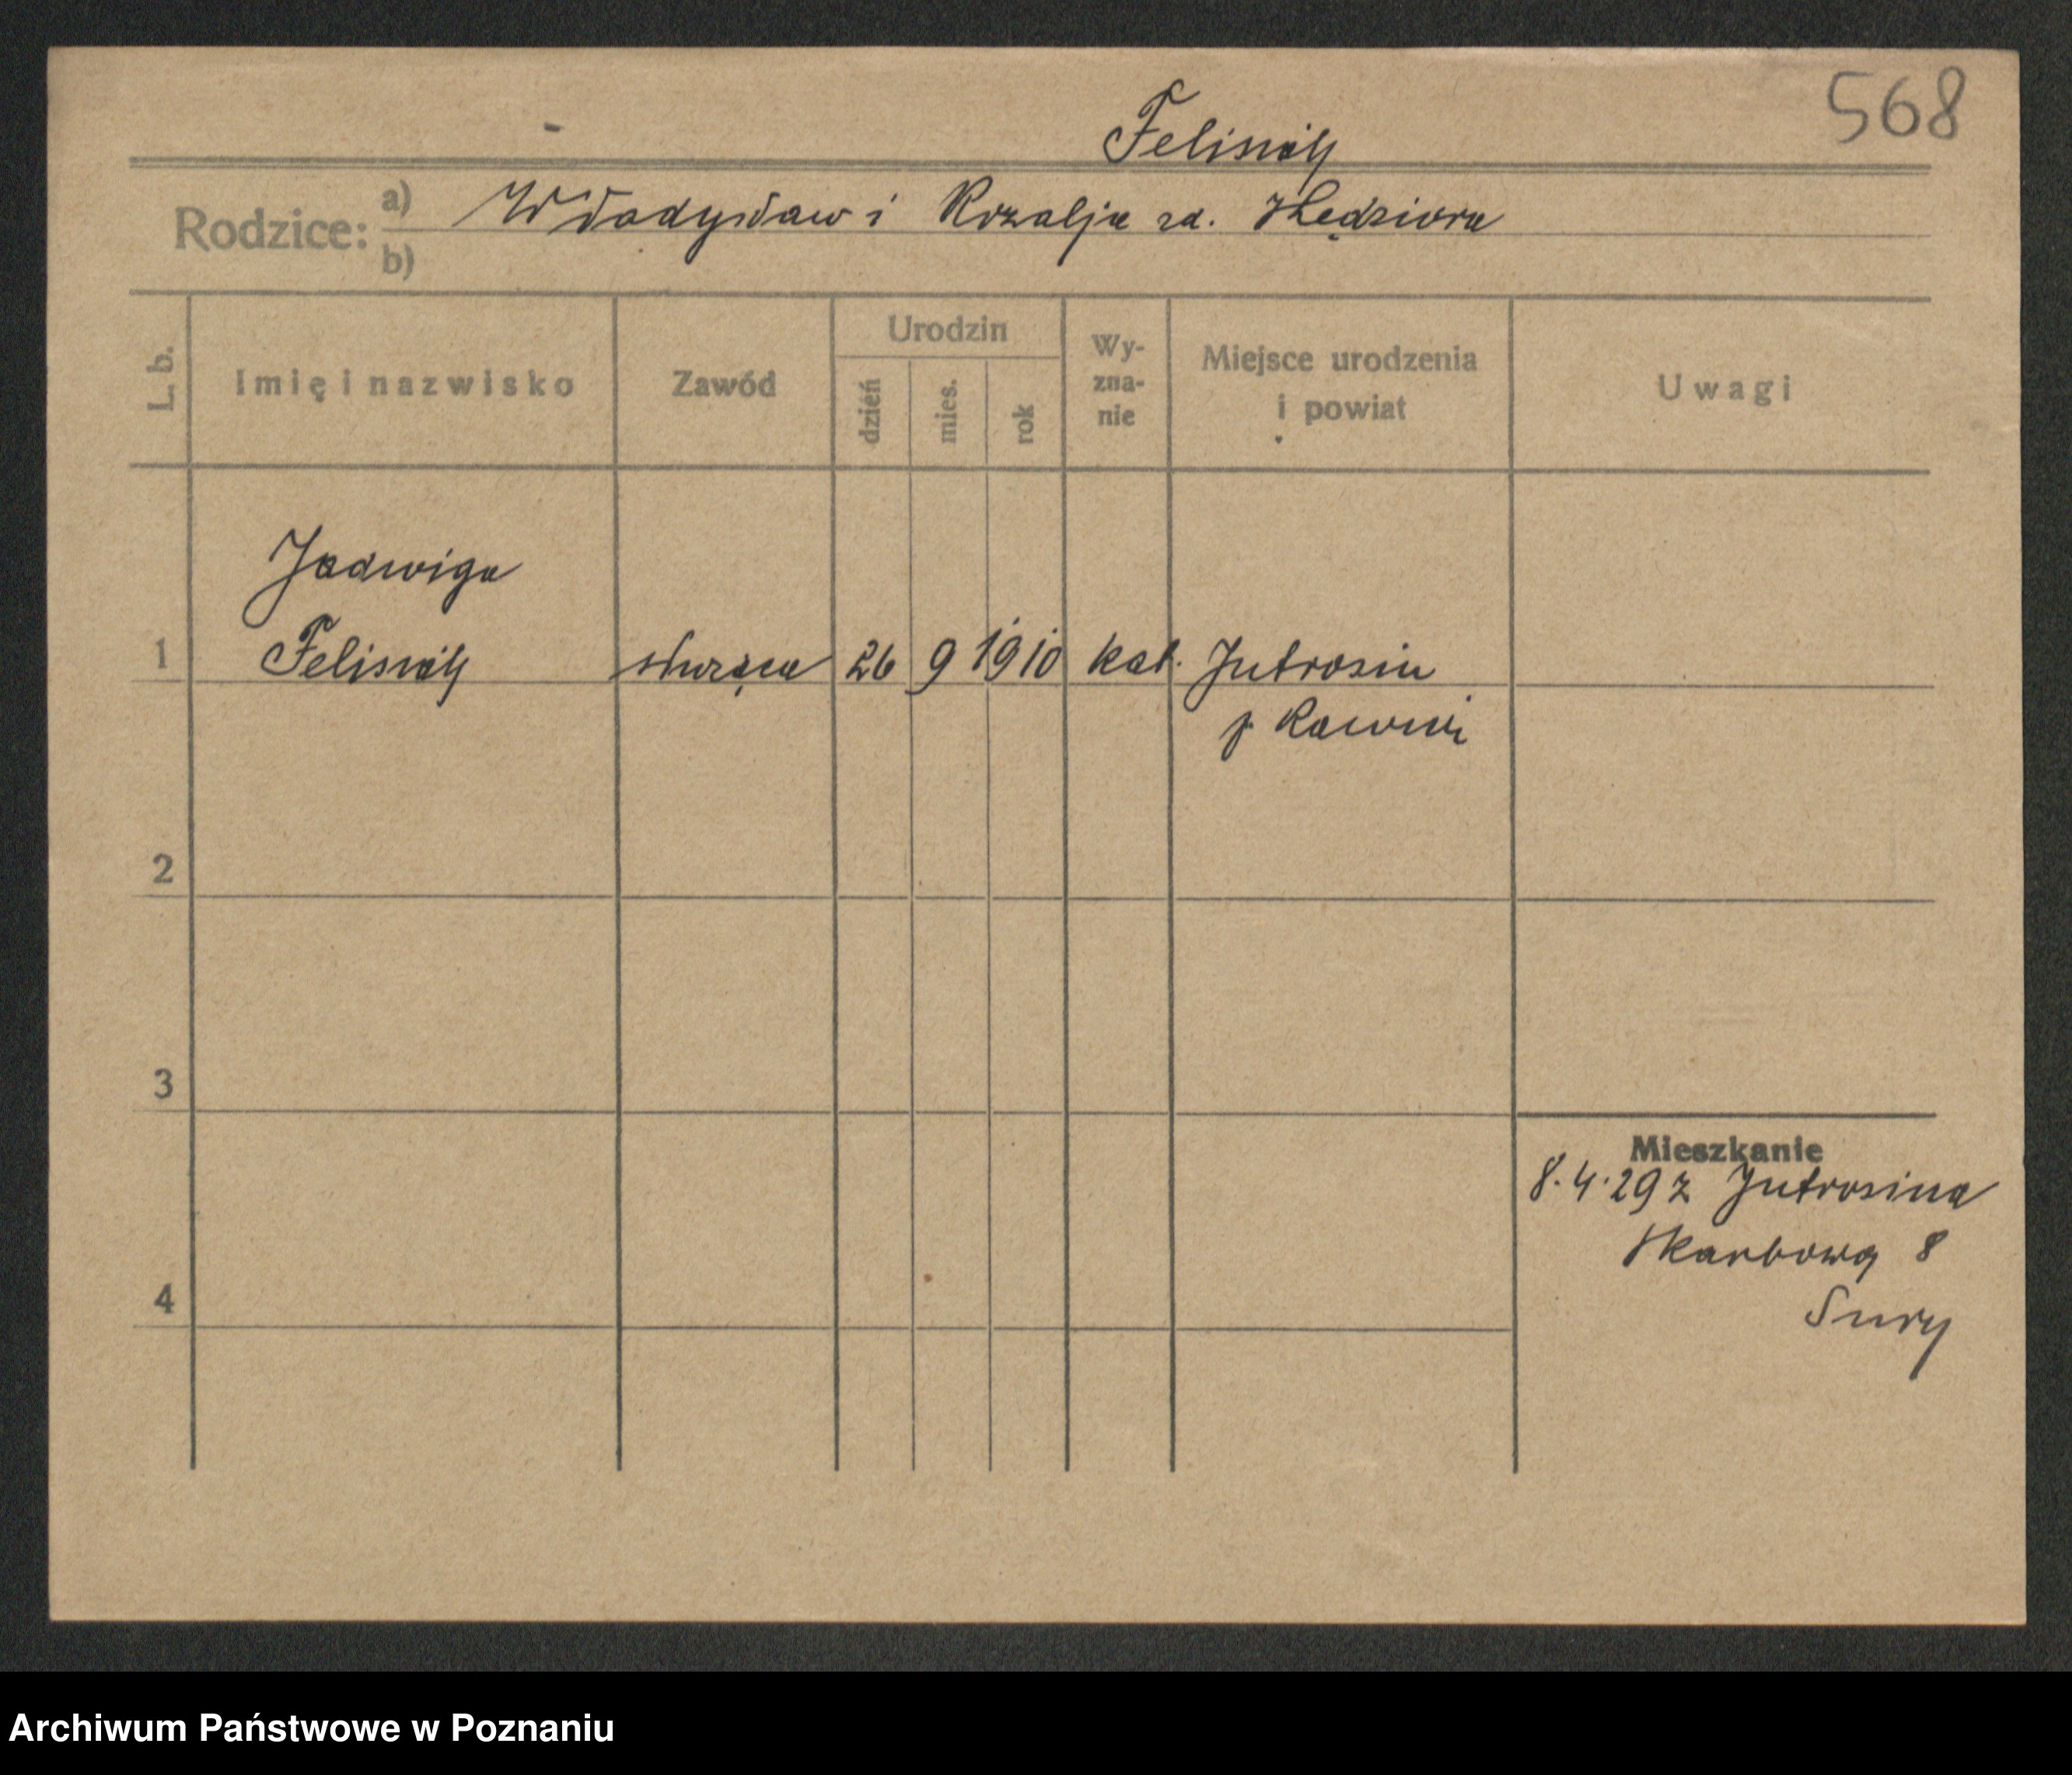 568
Rodzice: a) Władysław i Rozalja zd.
b)
L. b.
Imię i nazwisko
Zawód
Urodzin
dzień
mies.
rok
Wy-
zna-
nie
Miejsce urodzenia
i powiat
Uwagi
Jadwiga
1 służąca 26 9 1910 kat. Jutrosin
p
2
3
4
Mieszkanie
8.4.29 z Jutrosina
Skarbowa 8
Archiwum Państwowe w Poznaniu